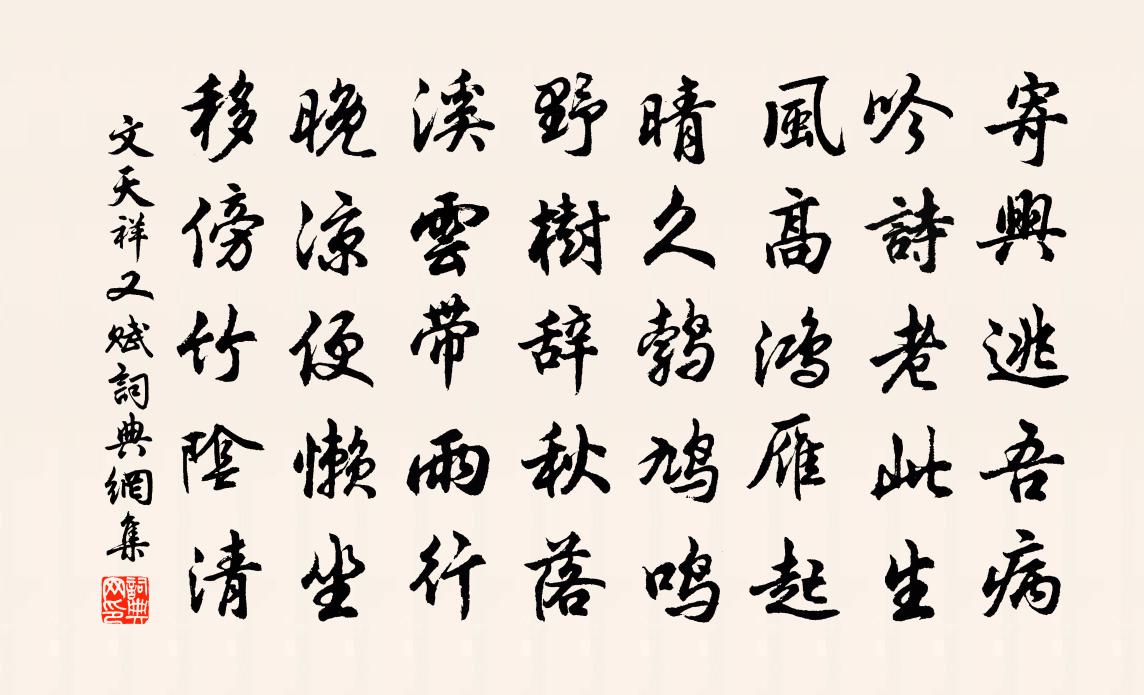 寄興逃吾病
吟詩老此生
風高鴻雁起
晴久鵓鳩鳴
野樹辞秋落
溪雲帶雨行
晚涼便懶坐
移傍竹陰清
文天祥又賦詞典網集
詞典網印